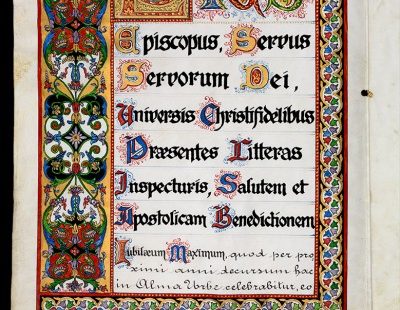 Episcopus, Servus
Servorum Dei,
Universis Christifidelibus
Præsentes Litteras
Inspecturis, Salutem et
Apostolicam Benedictionem
Iubilæum Maximum, quod per pro
ximi anni decursum hac
in Alma Urbe celebrabitur, eo